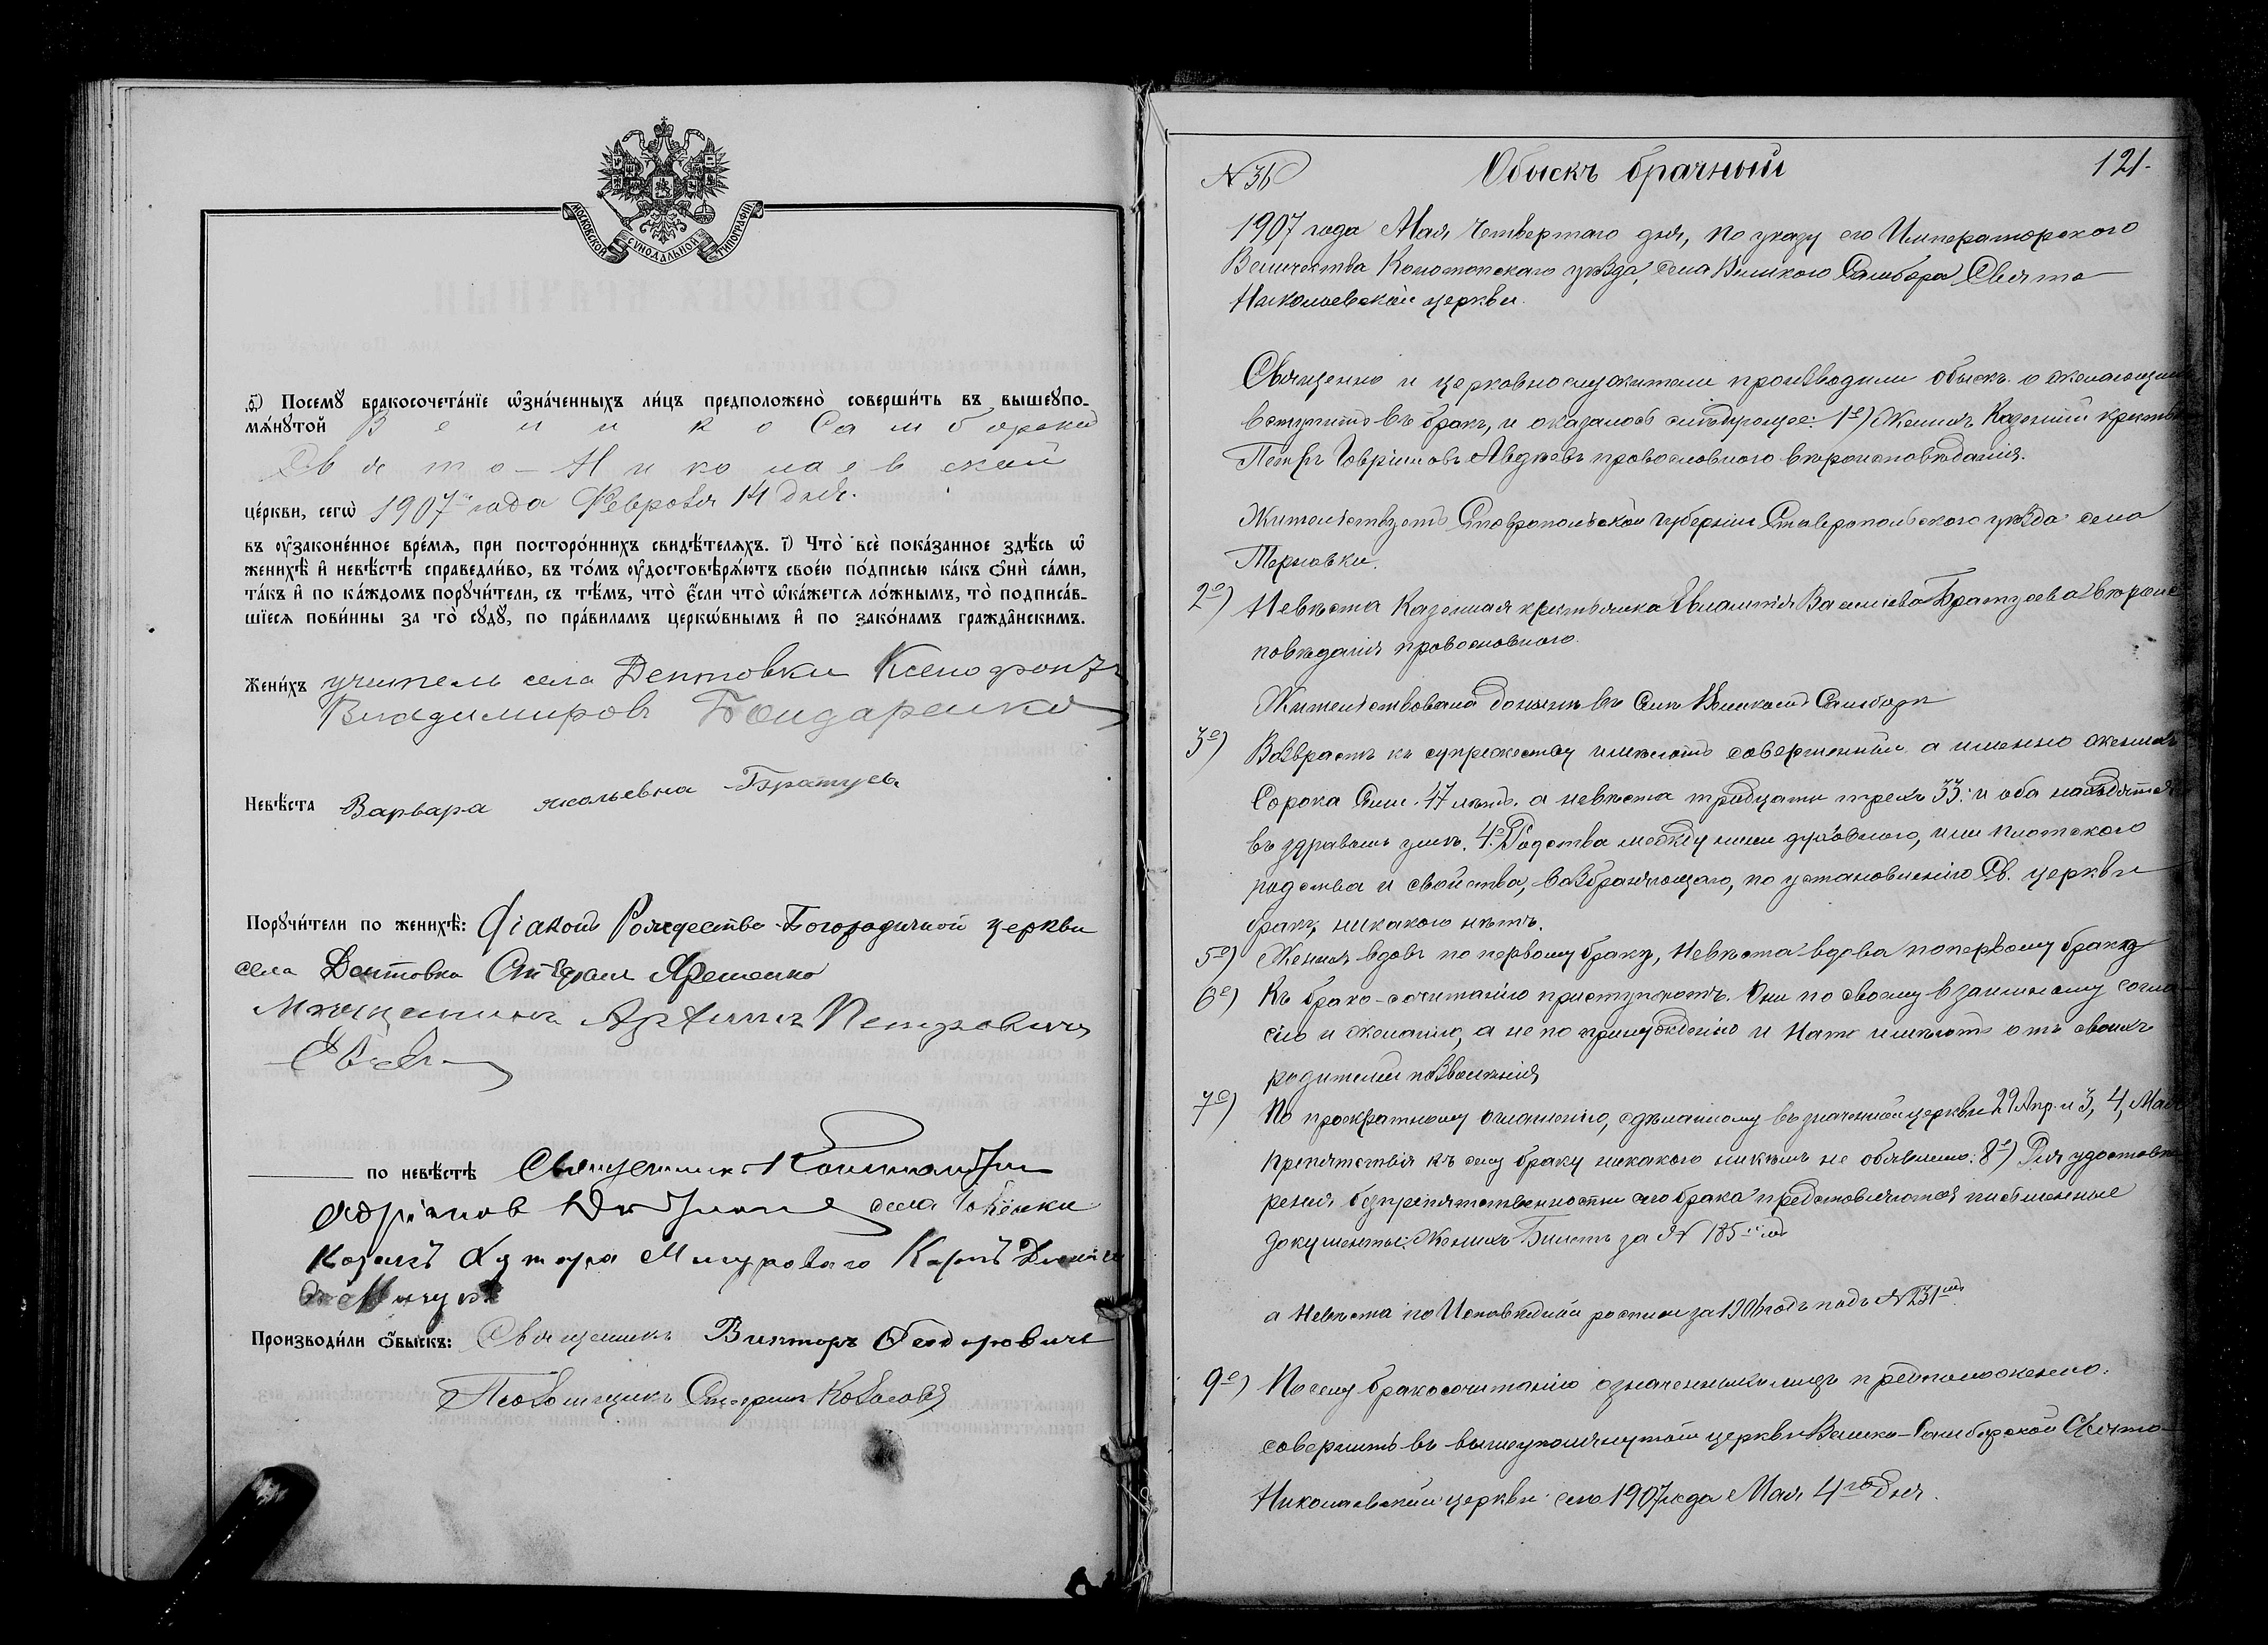 МОСКОВСКОЙ СѴНОДАЛЬНОЙ ТИПОГРАФІИ
Посемꙋ̀ бракосочета́нїе ѡ҆зна́ченныхъ ли́цъ предположено̀ соверши́ть въ вышеꙋпо-
мѧ́нꙋтой Велико Самборской
Свято-Николаевской
це́ркви, сегѡ̀ 1907 года Февраля 14 дня.
въ ᲂу҆зако́ненное вре́мѧ, при посторо́ннихъ свидѣ́телѧхъ. і҃) Что̀ всѐ пока́занное здѣ́сь ѡ҆
женихѣ̀ и҆ невѣ́стѣ справедли́во, въ то́мъ ᲂу҆достовѣрѧ́ютъ свое́ю по́дписью ка́къ ѻ҆нѝ са́ми,
та́къ и҆ по ка́ждомъ порꙋчи́тели, съ тѣ́мъ, что̀ є҆́сли что̀ ѡ҆ка́жетсѧ ло́жнымъ, то̀ подписа́в-
шїесѧ пови́нны за то̀ сꙋдꙋ̀, по пра́виламъ церко́внымъ и҆ по зако́намъ гражда̂нскимъ.
Жени́хъ учитель села Дептовки Ксенофонтъ
Владимировъ Бондаренко
Невѣ́ста Варвара Братусь
Порꙋчи́тели по женихѣ̀: Діаконъ Рождество-Богородичной церкви
села Дептовки
Петровичъ
по невѣ́стѣ Священникъ
села
Козакъ Хутора Карпъ
Производи́ли ѻ҆́быскъ: Священникъ Викторъ Федоровичъ
Псаломщикъ
N 36 Обыскъ брачный 121.
1907 года Мая четвертаго дня, по указу его Императорского
Величества Конотопскаго уѣзда, села Великого Самбора Свято
Николаевской церкви.
Священно и церковнослужители производили обыскъ о желающихъ
вступить въ бракъ, и оказалось слѣдующее: 1е) Женихъ Казенный крестья
Петръ Гавріиловъ Авдѣевъ провославного вѣроисповѣданія.
Жительствуетъ Ставропольской губерніи Ставропольского уѣзда села
Терновки.
2е) Невѣста Казенная крестьянка Васильева Братусева вѣроис
повѣданія провославного.
Жительствовала донынѣ въ Селѣ Великомъ Самборѣ
3е) Возврастъ къ супружеству имѣютъ совершенный а именно женихъ
Сорока Семи 47 лѣтъ. а невѣста тридцати трехъ 33: и оба находятся
въ здравомъ умѣ. 4е) Родства между ними духовного, или плотского
родства и свойства, возбраняющаго, по установленію Св. церкви
бракъ, никакого нѣтъ.
5е) Женихъ вдовъ по первому браку, Невѣста вдова по первому браку
6е) Къ брако-сочитанію приступаютъ. Они по своему взаимному согла
сію и желанію, а не по принужденію и имѣютъ отъ своихъ
родителей позволенія
7е) По троекратному оглашенію, сдѣланному въ означенной церкви 29 Апр. и 3, 4, Мая
препятствія къ сему браку никакого никѣмъ не обявлено: 8е) Для удостовѣ
ренія безпрепятственности сего брака представляются письменные
документы: Женихъ Билетъ за N 185
а Невѣста по Исповѣдной росписи за 1906 годъ подъ N 231
9е) Посему бракосочитанію означенныхъ лицъ предположено:
совершить въ вышеупомянутой церкви Велико-Самборской Свято-
Николаевской церкви сего 1907 года Мая 4го дня.